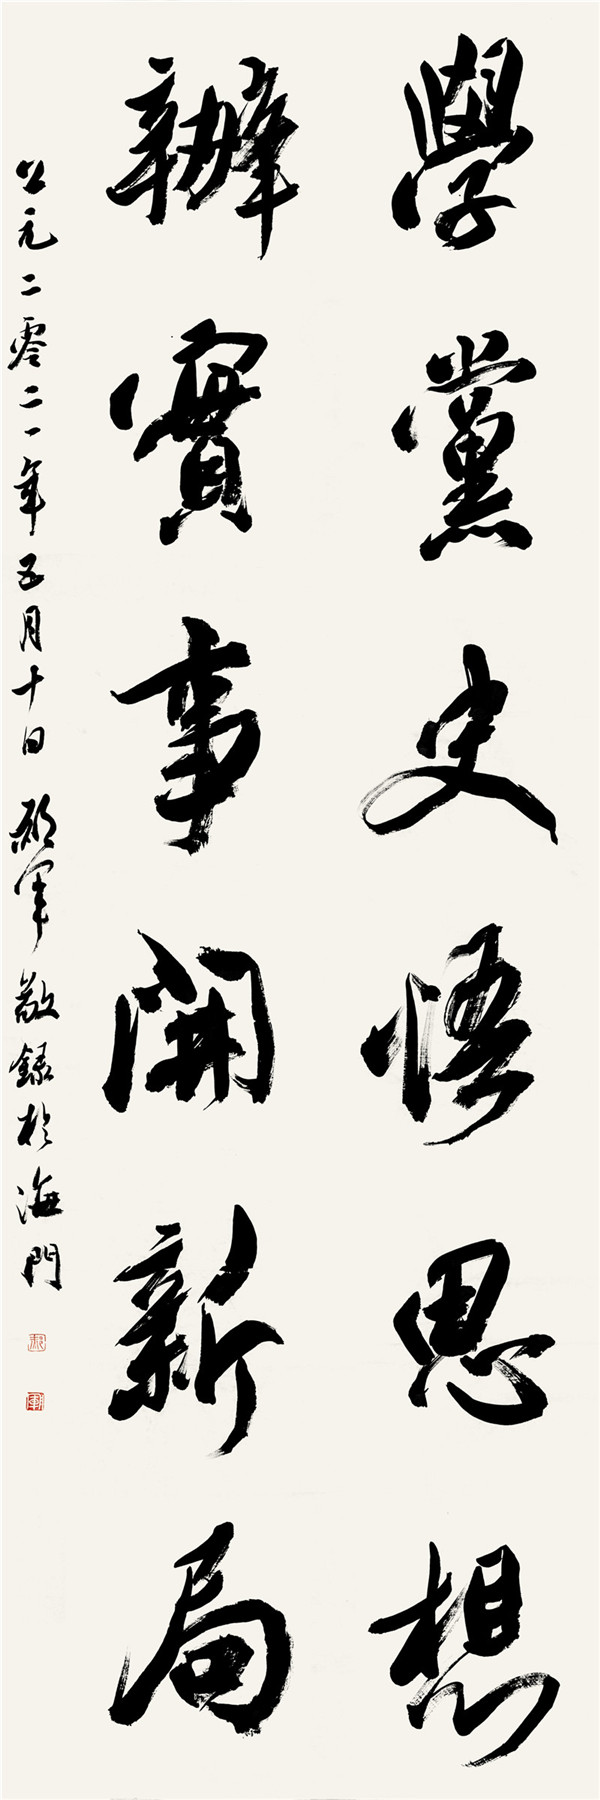 學黨史悟思想
辦實事開新局
公元二零二一年五月十日 軍敬錄於海門